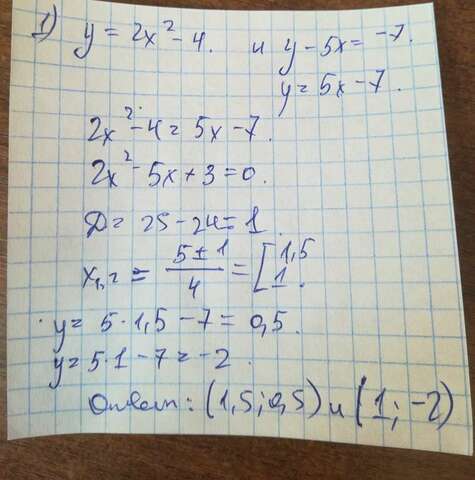 1) y = 2x² - 4. и y - 5x = -7.
y = 5x - 7.
2x² - 4 = 5x - 7.
2x² - 5x + 3 = 0.
Д = 25 - 24 = 1.
x₁,₂ = (5 ± 1)/4 = [1,5
1.
y = 5 · 1,5 - 7 = 0,5.
y = 5 · 1 - 7 = -2.
Ответ: (1,5; 0,5) и (1; -2)